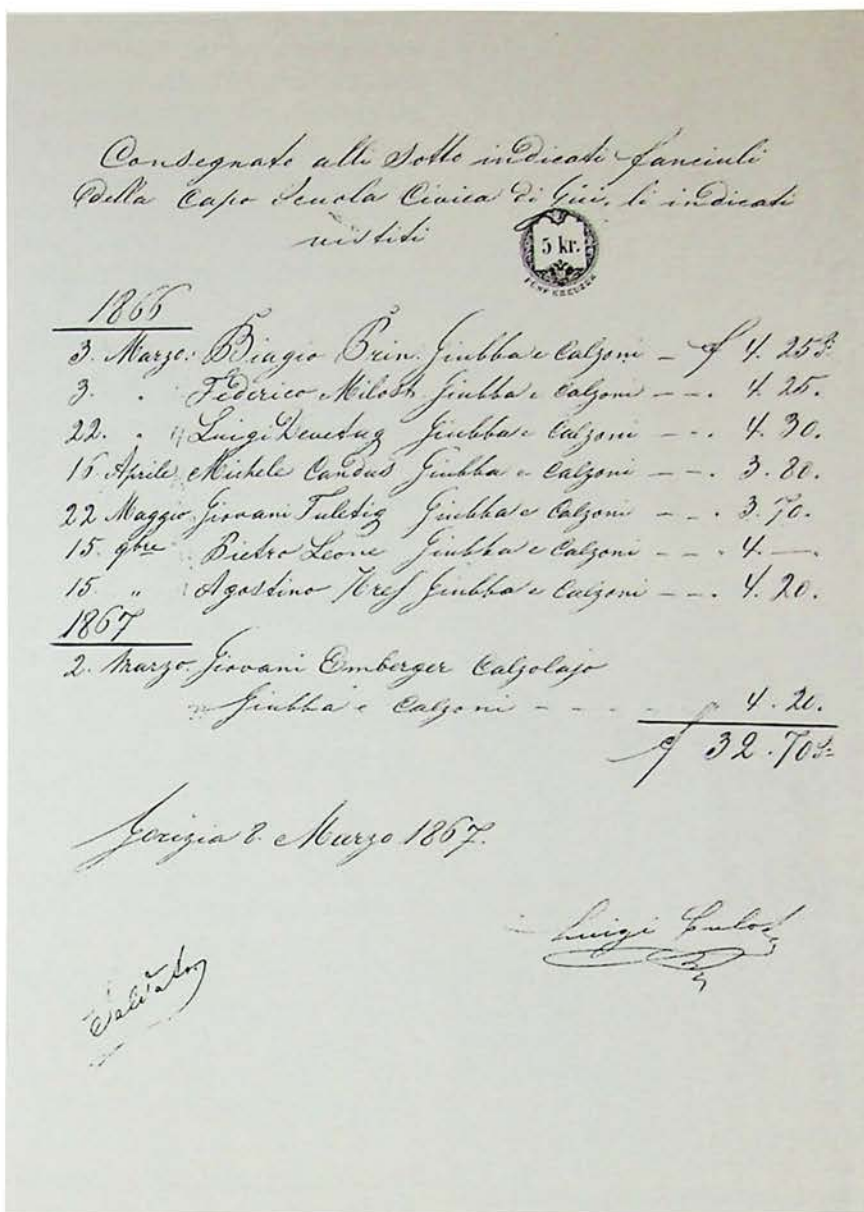 Consegnate alli sotto indicati fanciuli
della Capo Scuola Civica di li indicati
vistiti
5 kr.
FÜNF KREUZER
1866
3. Marzo: Biagio Prin. Giubba e Calzoni — f 4. 25
3. " Federico Milost Giubba e Calzoni — — . 4. 25.
22. " Luigi Devetag Giubba e Calzoni — — . 4. 30.
16 Aprile Michele Candus Giubba e Calzoni — — . 3. 80.
22 Maggio Giovani Tuletig Giubba e Calzoni — — . 3. 70.
15. 9bre Pietro Leone Giubba e Calzoni — — . 4. —.
15. " Agostino Giubba e Calzoni — — . 4. 20.
1867
2. Marzo. Giovani Emberger Calzolajo
Giubba e Calzoni — — — 4. 20.
f 32. 70
Gorizia 8. Marzo 1867.
Luigi
Saldato